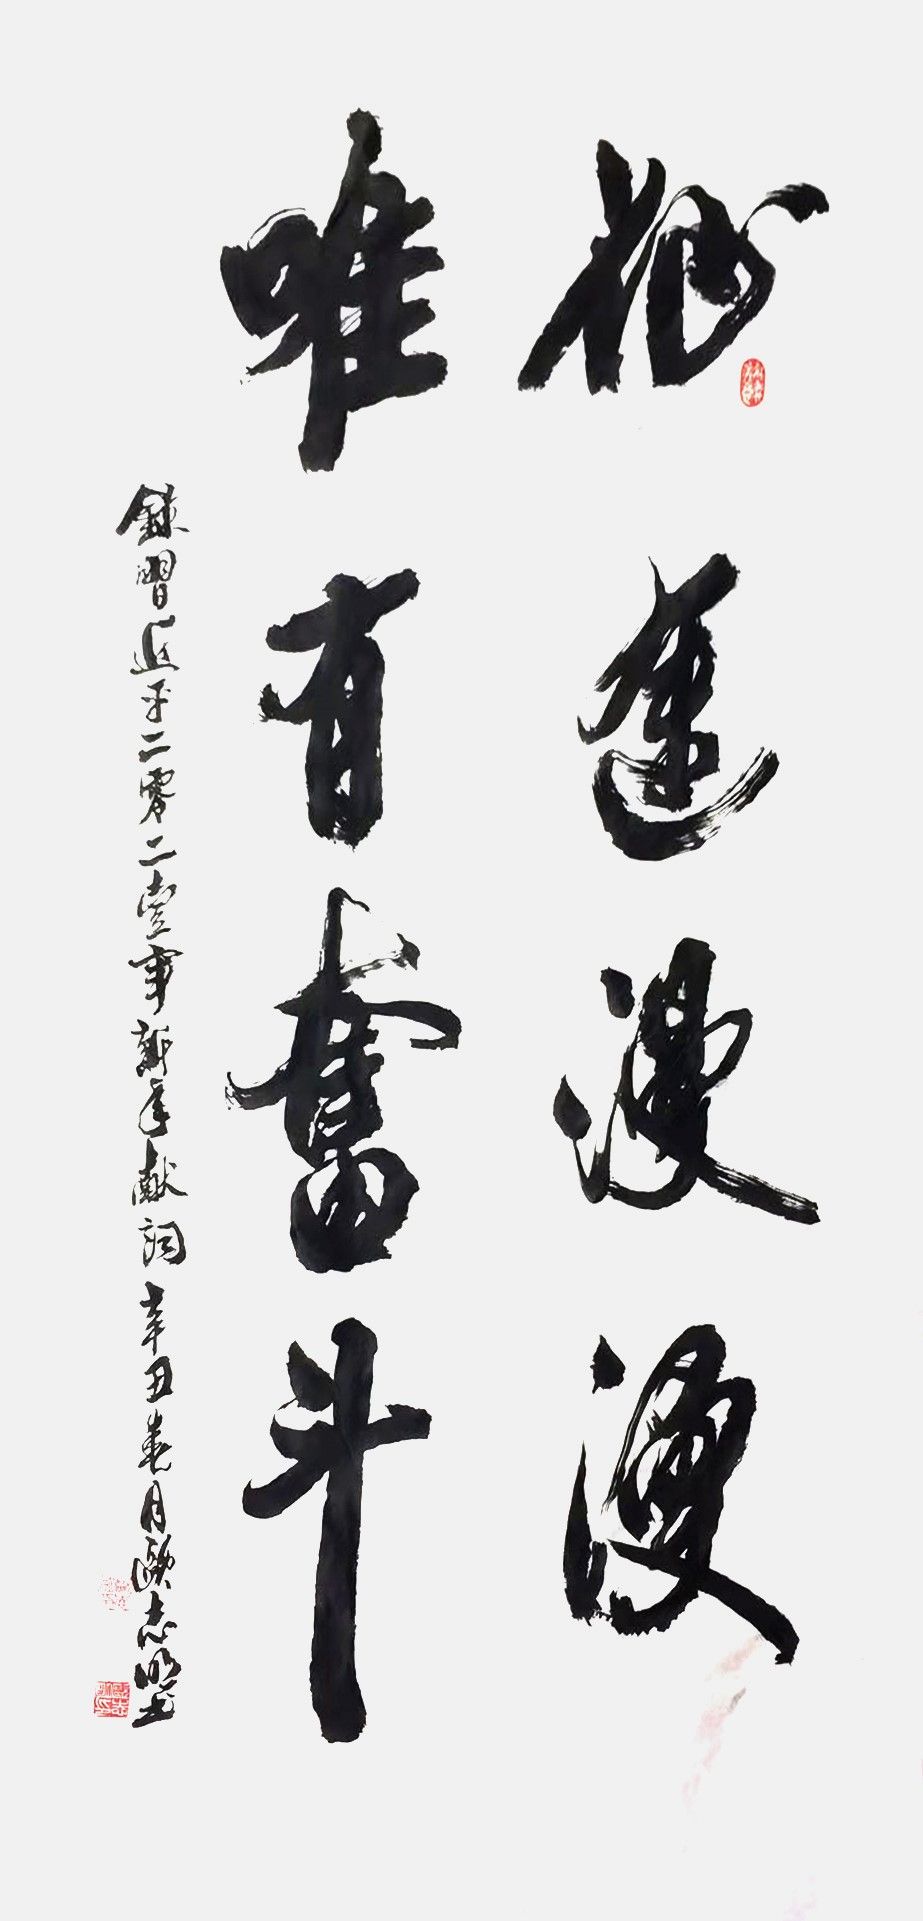 征途漫漫
唯有奮斗
錄習近平二零二壹年新年献詞辛丑春月歐志明书